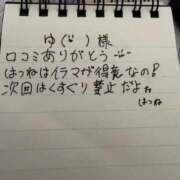 ゆ(いい)様
口コミありがとう
はつねはイラマが得意なの!
次回はくすぐり禁止だよ
はつね